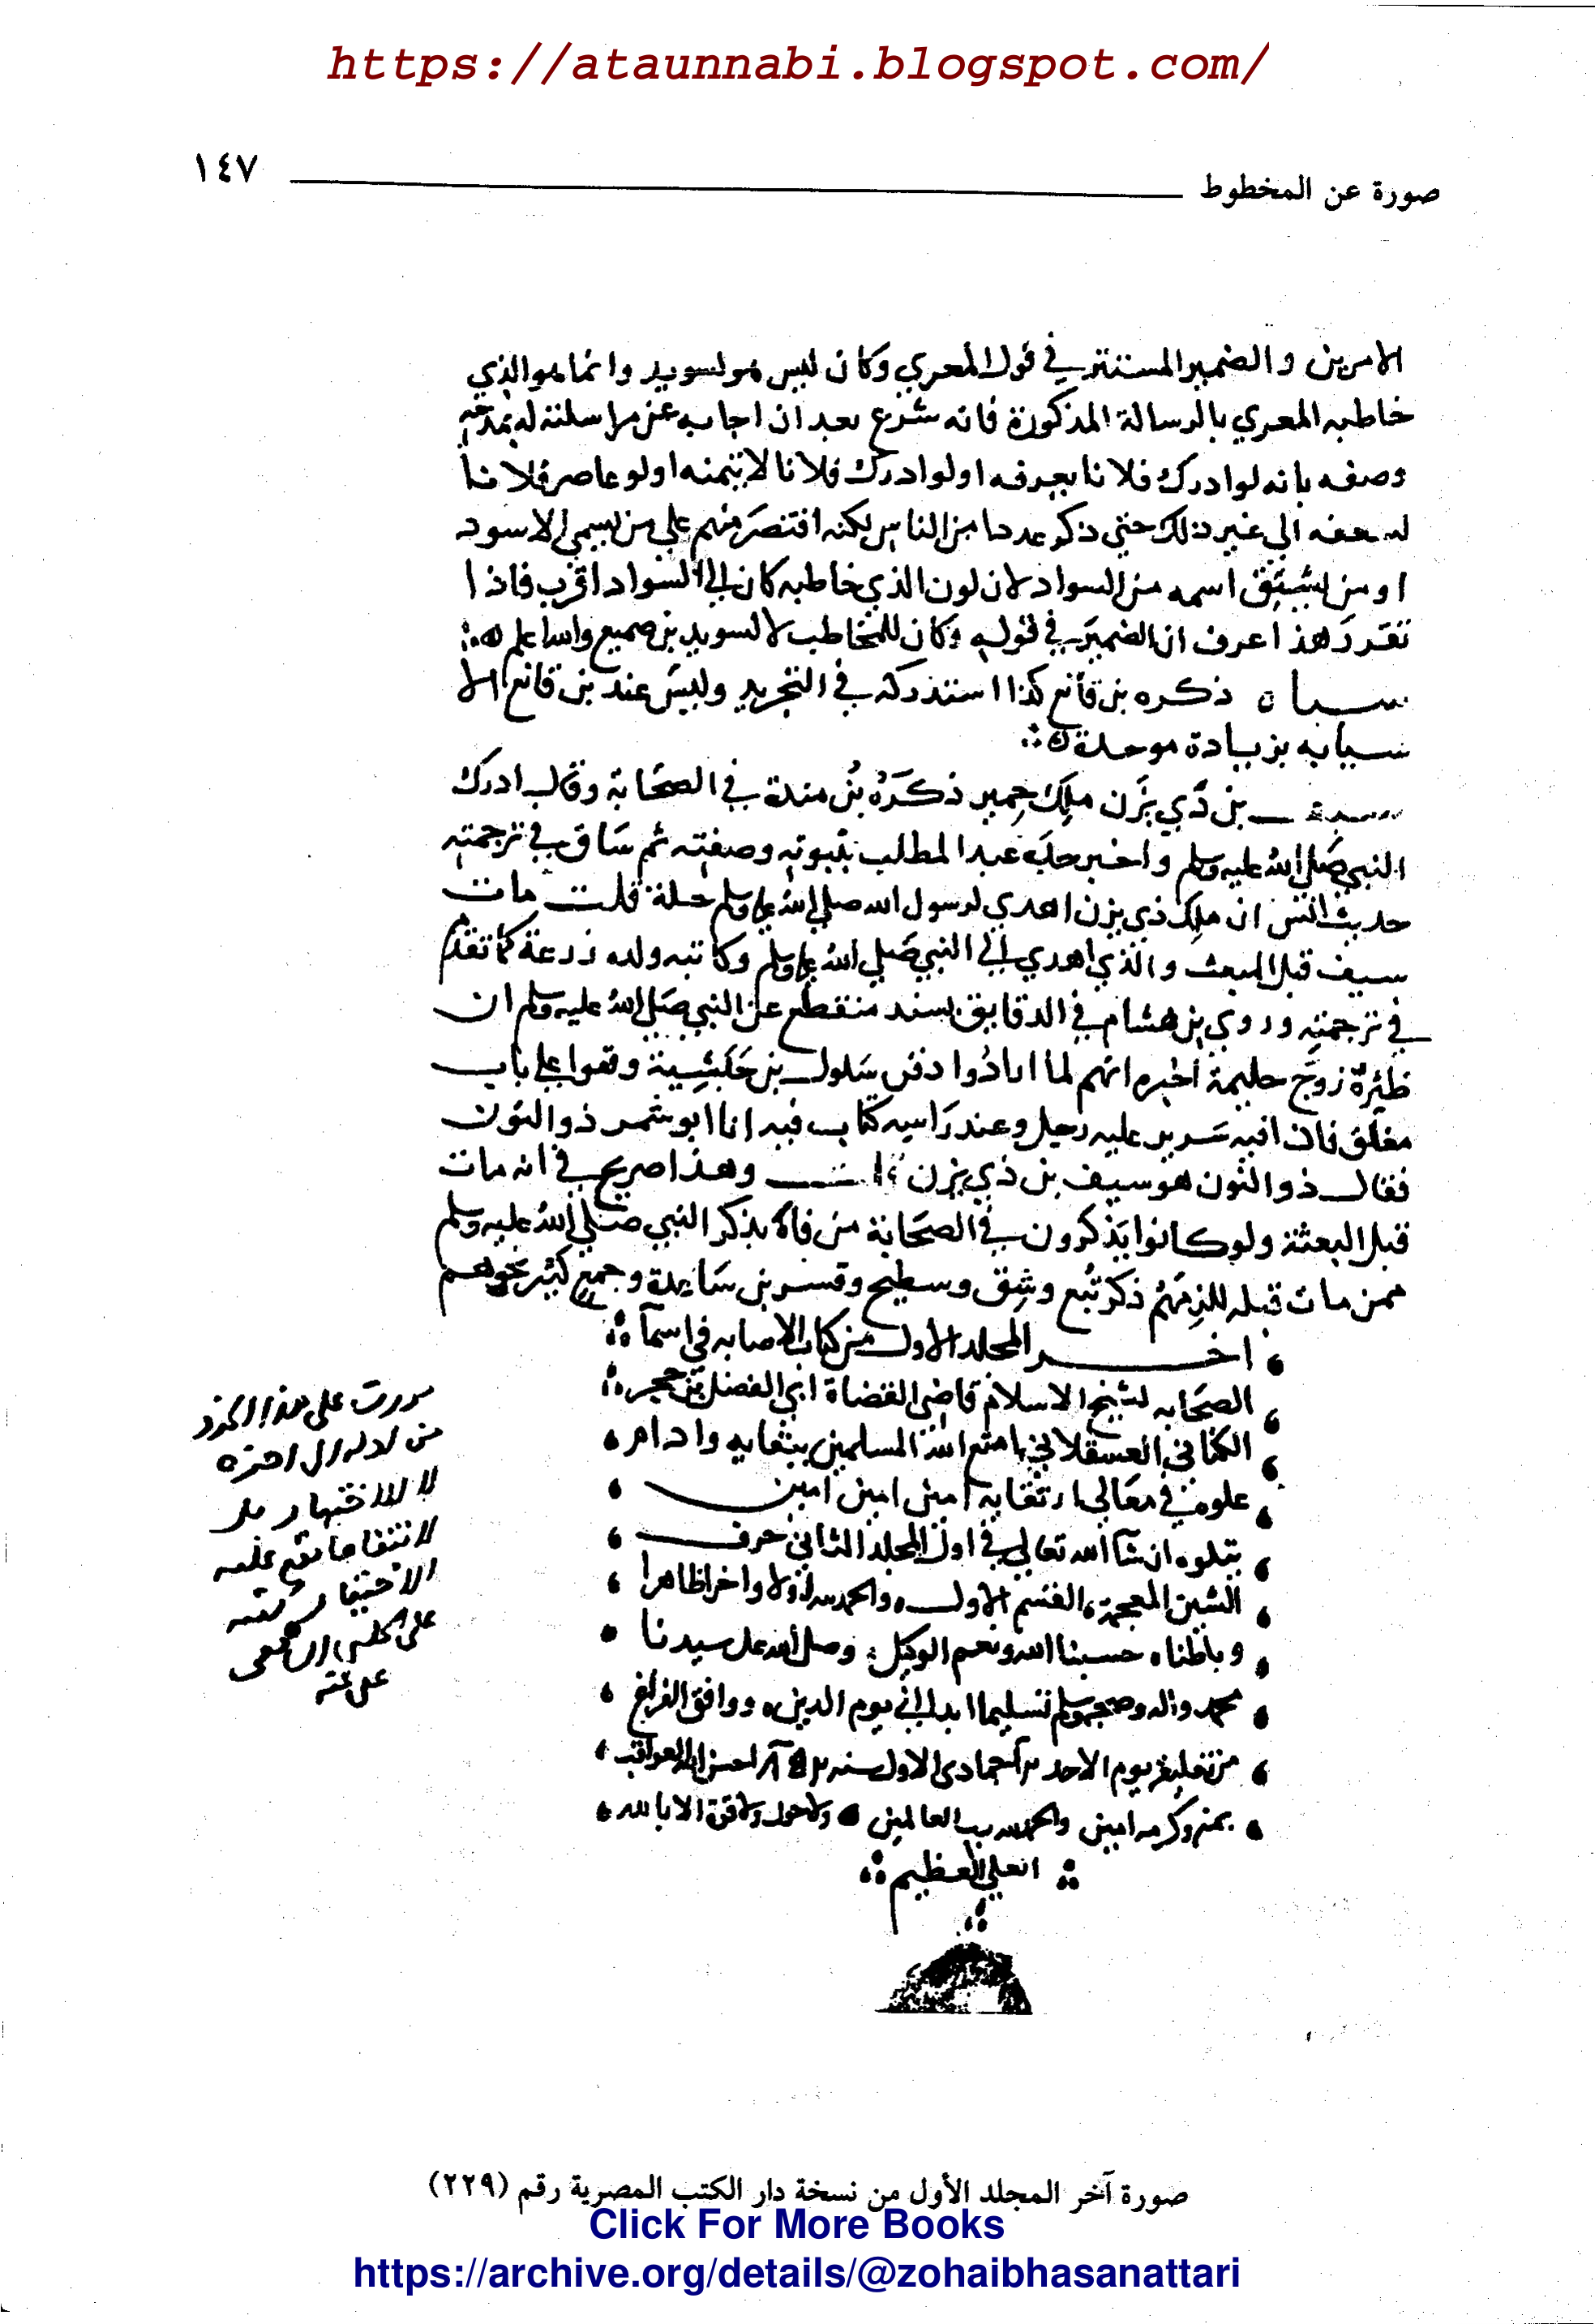 https://ataunnabi.blogspot.com/
صورة عن المخطوط ١٤٧
الامرين والضمير المستتر في قول المعري وكان ليس هو لسويد وانما هو الذي
خاطبه المعري بالرسالة المذكورة فانه شرع بعد ان اجابه عن مراسلته له بمدحه
وصفه بانه لو ادرك فلانا او لو ادرك فلانا او لو عاصر فلانا
الى غير ذلك حتى ذكر عددا من الناس لكنه اقتصر منهم على من يسمى الاسود
او من اسمه من السواد لان لون الذي خاطبه كان الى السواد اقرب فاذا
تقرر هذا اعرف ان الضمير في قوله وكان للمخاطب لا لسويد بن صميع والله اعلم
ذكره بن قانع كذا استدركه في التجريد وليس عند بن قانع الا
سيابه بزيادة موحدة
بن ذي يزن ملك حمير ذكره بن مندة في الصحابة وقال ادرك
النبي صلى الله عليه وسلم واخبر عبد المطلب بنبوته وصفته ثم ساق في ترجمته
حديث انس ان ملك ذي يزن اهدى لرسول الله صلى الله عليه وسلم حلة قلت مات
سيف قبل المبعث والذي اهدى الى النبي صلى الله عليه وسلم وكاتبه ولده زرعة كما تقدم
في ترجمته وروى بن هشام في الدقايق بسند منقطع عن النبي صلى الله عليه وسلم ان
ظئره زوج حليمة اخبره انهم لما ارادوا دفن سلول بن حبشية وقعوا على باب
مغلق فاذا فيه سرير عليه رجل وعند راسه كتاب فيه انا ابو شمر ذو النون
فقال ذو النون هو سيف بن ذي يزن وهذا صريح في انه مات
قبل البعثة ولو كانوا يذكرون في الصحابة من فاه بذكر النبي صلى الله عليه وسلم
ممن مات قبله للزمهم ذكر تبع وشق وسطيح وقس بن ساعدة وجمع كثير نحوهم
اخر المجلد الاول من كتاب الاصابه في اسما
الصحابه لشيخ الاسلام قاضي القضاة ابي الفضل بن حجر
الكناني العسقلاني امتع الله المسلمين ببقايه وادام
علوه في معالي ارتقايه امين امين امين
يتلوه ان شا الله تعالى في اول المجلد الثاني حرف
الشين المعجمة القسم الاول والحمد لله اولا واخرا ظاهرا
وباطنا حسبنا الله ونعم الوكيل وصلى الله على سيدنا
محمد واله وصحبه وسلم تسليما ابدا الى يوم الدين ووافق الفراغ
من تعليقه يوم الاحد جمادى الاول سنه احسن الله العواقب
بمنه وكرمه امين والحمد لله رب العالمين ولا حول ولا قوة الا بالله
العلي العظيم
مررت على هذا
من اوله الى اخره
صورة آخر المجلد الأول من نسخة دار الكتب المصرية رقم (٢٢٩)
Click For More Books
https://archive.org/details/@zohaibhasanattari